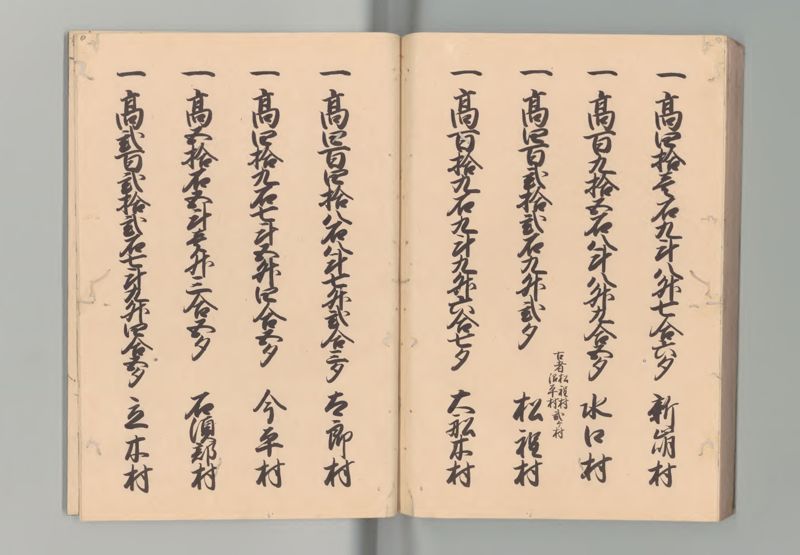 一 高四拾壱石九斗八升七合六夕 新崩村
一 高百九拾五石八斗八升九合五夕 水口村
一 高四百弐拾弐石九升弐夕
古者松程村
沼平村弐ケ村
松程村
一 高百拾九石九斗九升六合七夕 大船木村
一 高四百四拾八石八斗七升弐合三夕 太郎村
一 高四拾九石七斗五升四合五夕 今平村
一 高五拾石五斗壱升三合五夕 石須部村
一 高弐百弐拾弐石七斗 升四合五夕 立木村